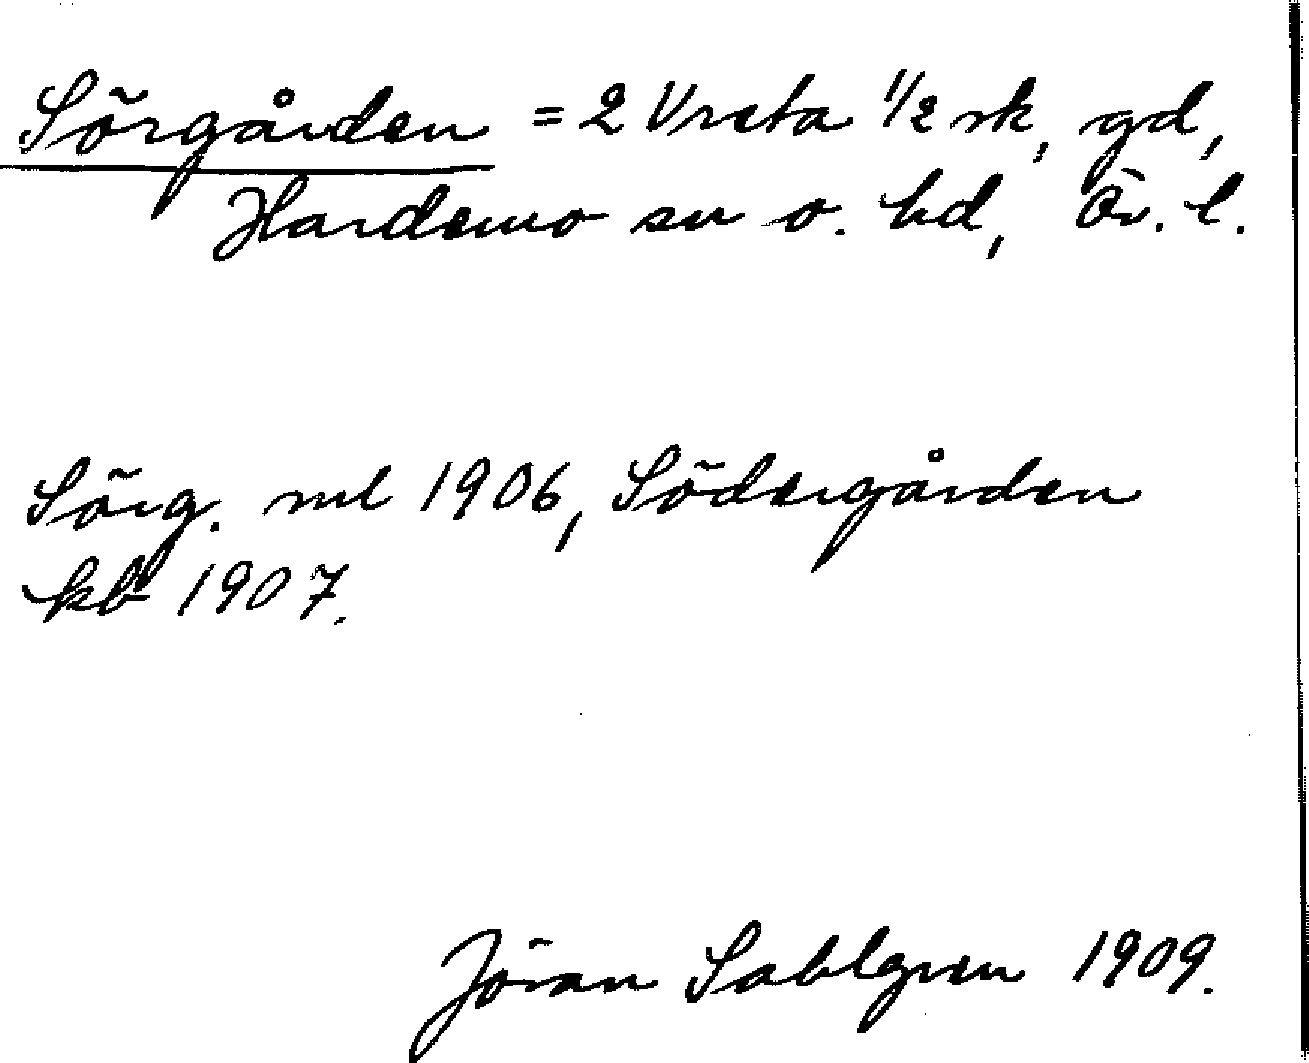 Sörgården = 2 Vreta 1/2 rk, gd,
Hardemo sn o. hd, Ör. l.
Sörg. ml 1906, Södergården
kb 1907.
Jöran Sahlgren 1909.